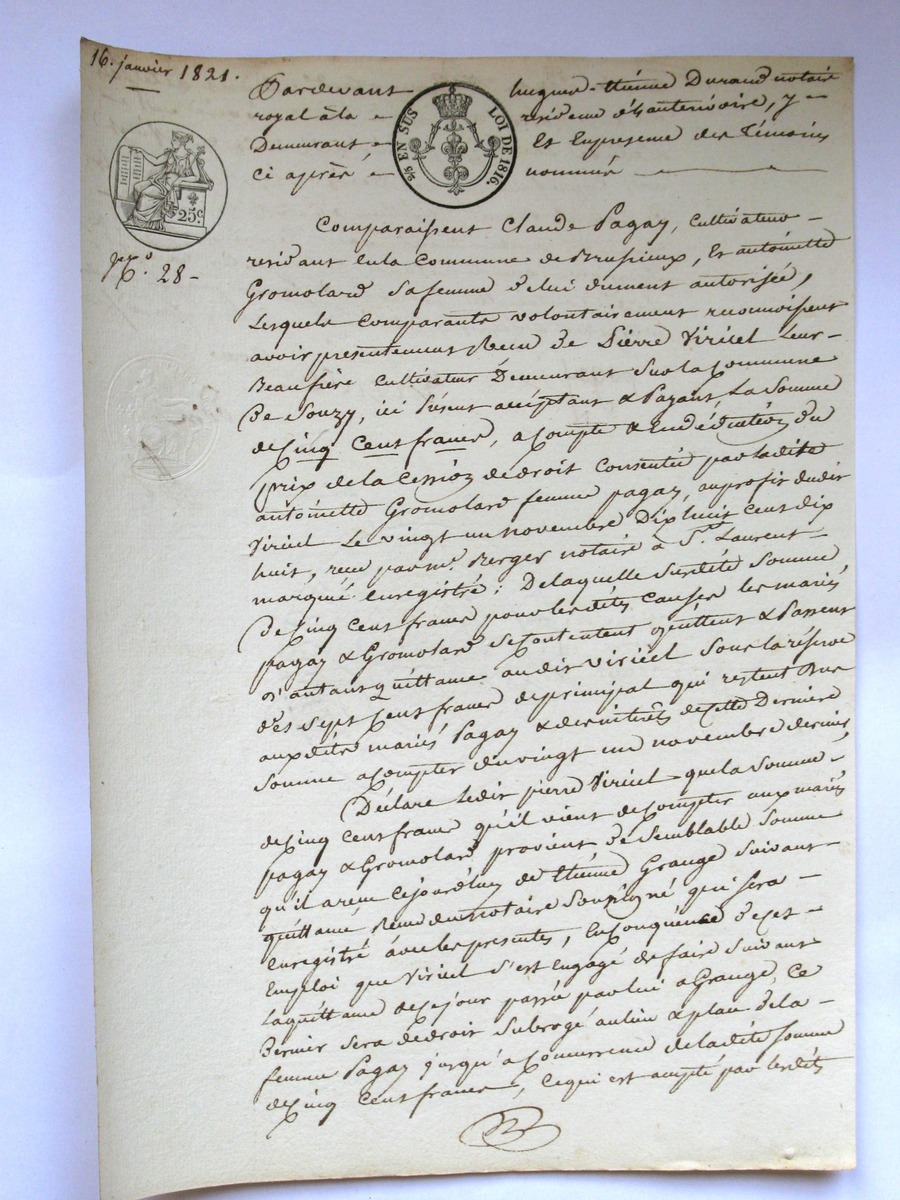 16. janvier 1821.
Pardevant hugues-étienne Durand notaire
royal à la résidence de chantenoire, y
Demeurant Et En presence des Témoins
ci après nommés
2/5 EN SUS LOI DE 1816.
25c.
No. 28
Comparaissent Claude Pagay, Cultivateur
residant En la Commune de Brussieux, Et antoinette
Gromolard sa femme de lui dument autorisée,
Lesquels comparants volontairement reconnoissent
avoir presentement Recu de Pierre Viricel Leur
Beaufrère Cultivateur Demeurant sur la Commune
De Souzy, ici Présent acceptant & Payant La Somme
de Cinq Cent francs, a Compte & En déduction du
prix de la Cession de droit Consentie par ladite
antoinette Gromolard femme pagay, au profit dudit
Viricel Le vingt un novembre Dix huit cent dix
huit, recu par me. Berger notaire à St. Laurent
marqué Enregistré; De laquelle Susdite Somme
De Cinq Cent francs pour lesdites causes les mariés
pagay & Gromolard se Contentent quittent & Passent
d'autant quittance audit viricel Sous la réserve
des Sept Cent francs de principal qui restent Dus
auxdits mariés Pagay & des intérêts de Cette Derniere
Somme a Compter du vingt un novembre dernier
Déclare Ledit pierre Viricel que la Somme
de Cinq Cent francs qu'il vient de Compter aux mariés
pagay & Gromolard provient de Semblable Somme
qu'il a recu Cejourd'huy de étienne Grange Suivant
quittance Recue du notaire Soussigné qui sera
Enregistré avec les presentes, En Conséquence de cet
Emploi que Viricel s'est Engagé de faire Suivant
La quittance de Ce jour passée par lui a Grange, Ce
Dernier sera de droit Subrogé au lieu & place de la
femme Pagay jusqu'a Concurrence de ladite Somme
de Cinq Cent francs, Ce qui est accepté par lesdits